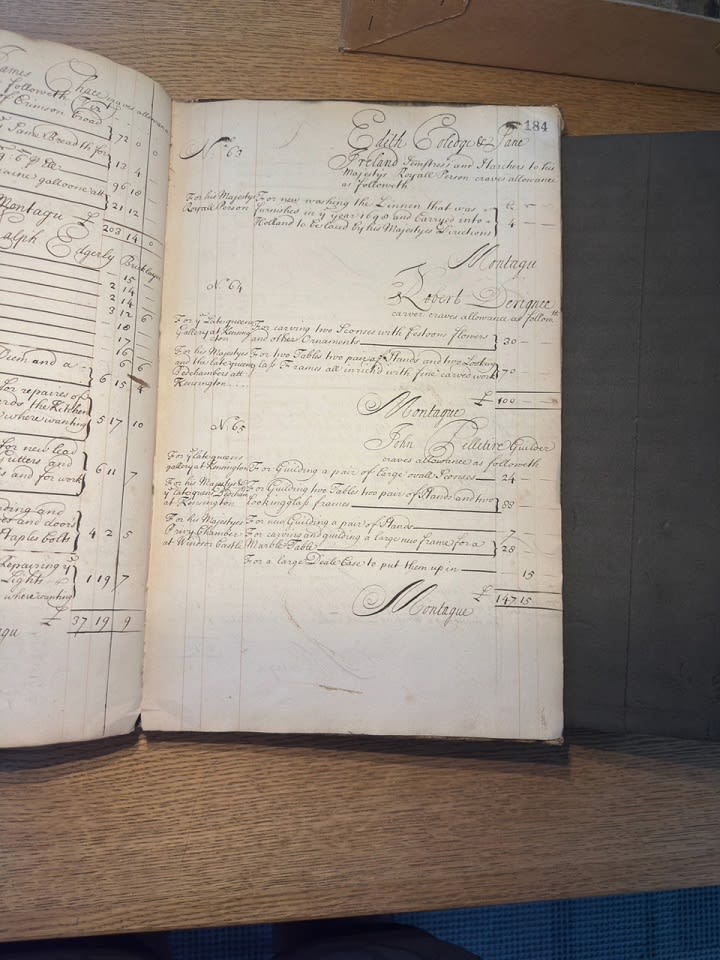 James Chace craves allowance
followeth Viz
of Crimson broad
72 0 0
Same Breadth for
13 4 -
96 18
galloone att
21 12
Montagu £ 203 14 0
Ralph Edgerly Bricklayer
- 15 -
2 14 -
2 14 -
3 12 6
- 18
- 17
- 16 6
and a - 6
6 15 4
for repaires of
the Kitchen
where wanting 5 17 10
for new lead
Gutters and
and for work 6 11 7
and
and doors
Staples bolts 4 2 5
Repairing ye
Lights
where wanting 1 19 7
£ 37 19 9
184
No. 63
Edith Coledge & Jane
Ireland Semstress and Starchers to his
Majestys Royall Person craves allowance
as followeth
For his Majestys For new washing the Linnen that was £ - -
Royall Person furnished in ye year 1698 and carryed into 4 - -
Holland to be laced by his Majestyes Directions
Montagu
No. 64
Robert Derignee
carver craves allowance as followth
For ye Late queens
Gallery at Kensing For carving two Sconses with festoons flowers
ton and other Ornaments 30 - -
For his Majestys For two Tables two pair of Stands and two Looking
and the late queens glass Frames all inrich'd with fine carved work 70 -
Bedchambers att
Kensington
£ 100 - -
Montague
No. 65
John Pelletire Guilder
craves allowance as followeth
For ye late queens
gallery at Kensington For Guilding a pair of large ovall Sconses 24 -
For his Majestys For Guilding two Tables two pair of Stands and two
ye late queens Bedcham
at Kensington lookinglass frames 88 -
For his Majestyes For new Guilding a pair of Stands 7 -
Privy Chamber For carving and guilding a large new frame for a
at Windsor Castle Marble Table 28 -
For a large Deale Case to put them up in 15
£ 147 15 -
Montague